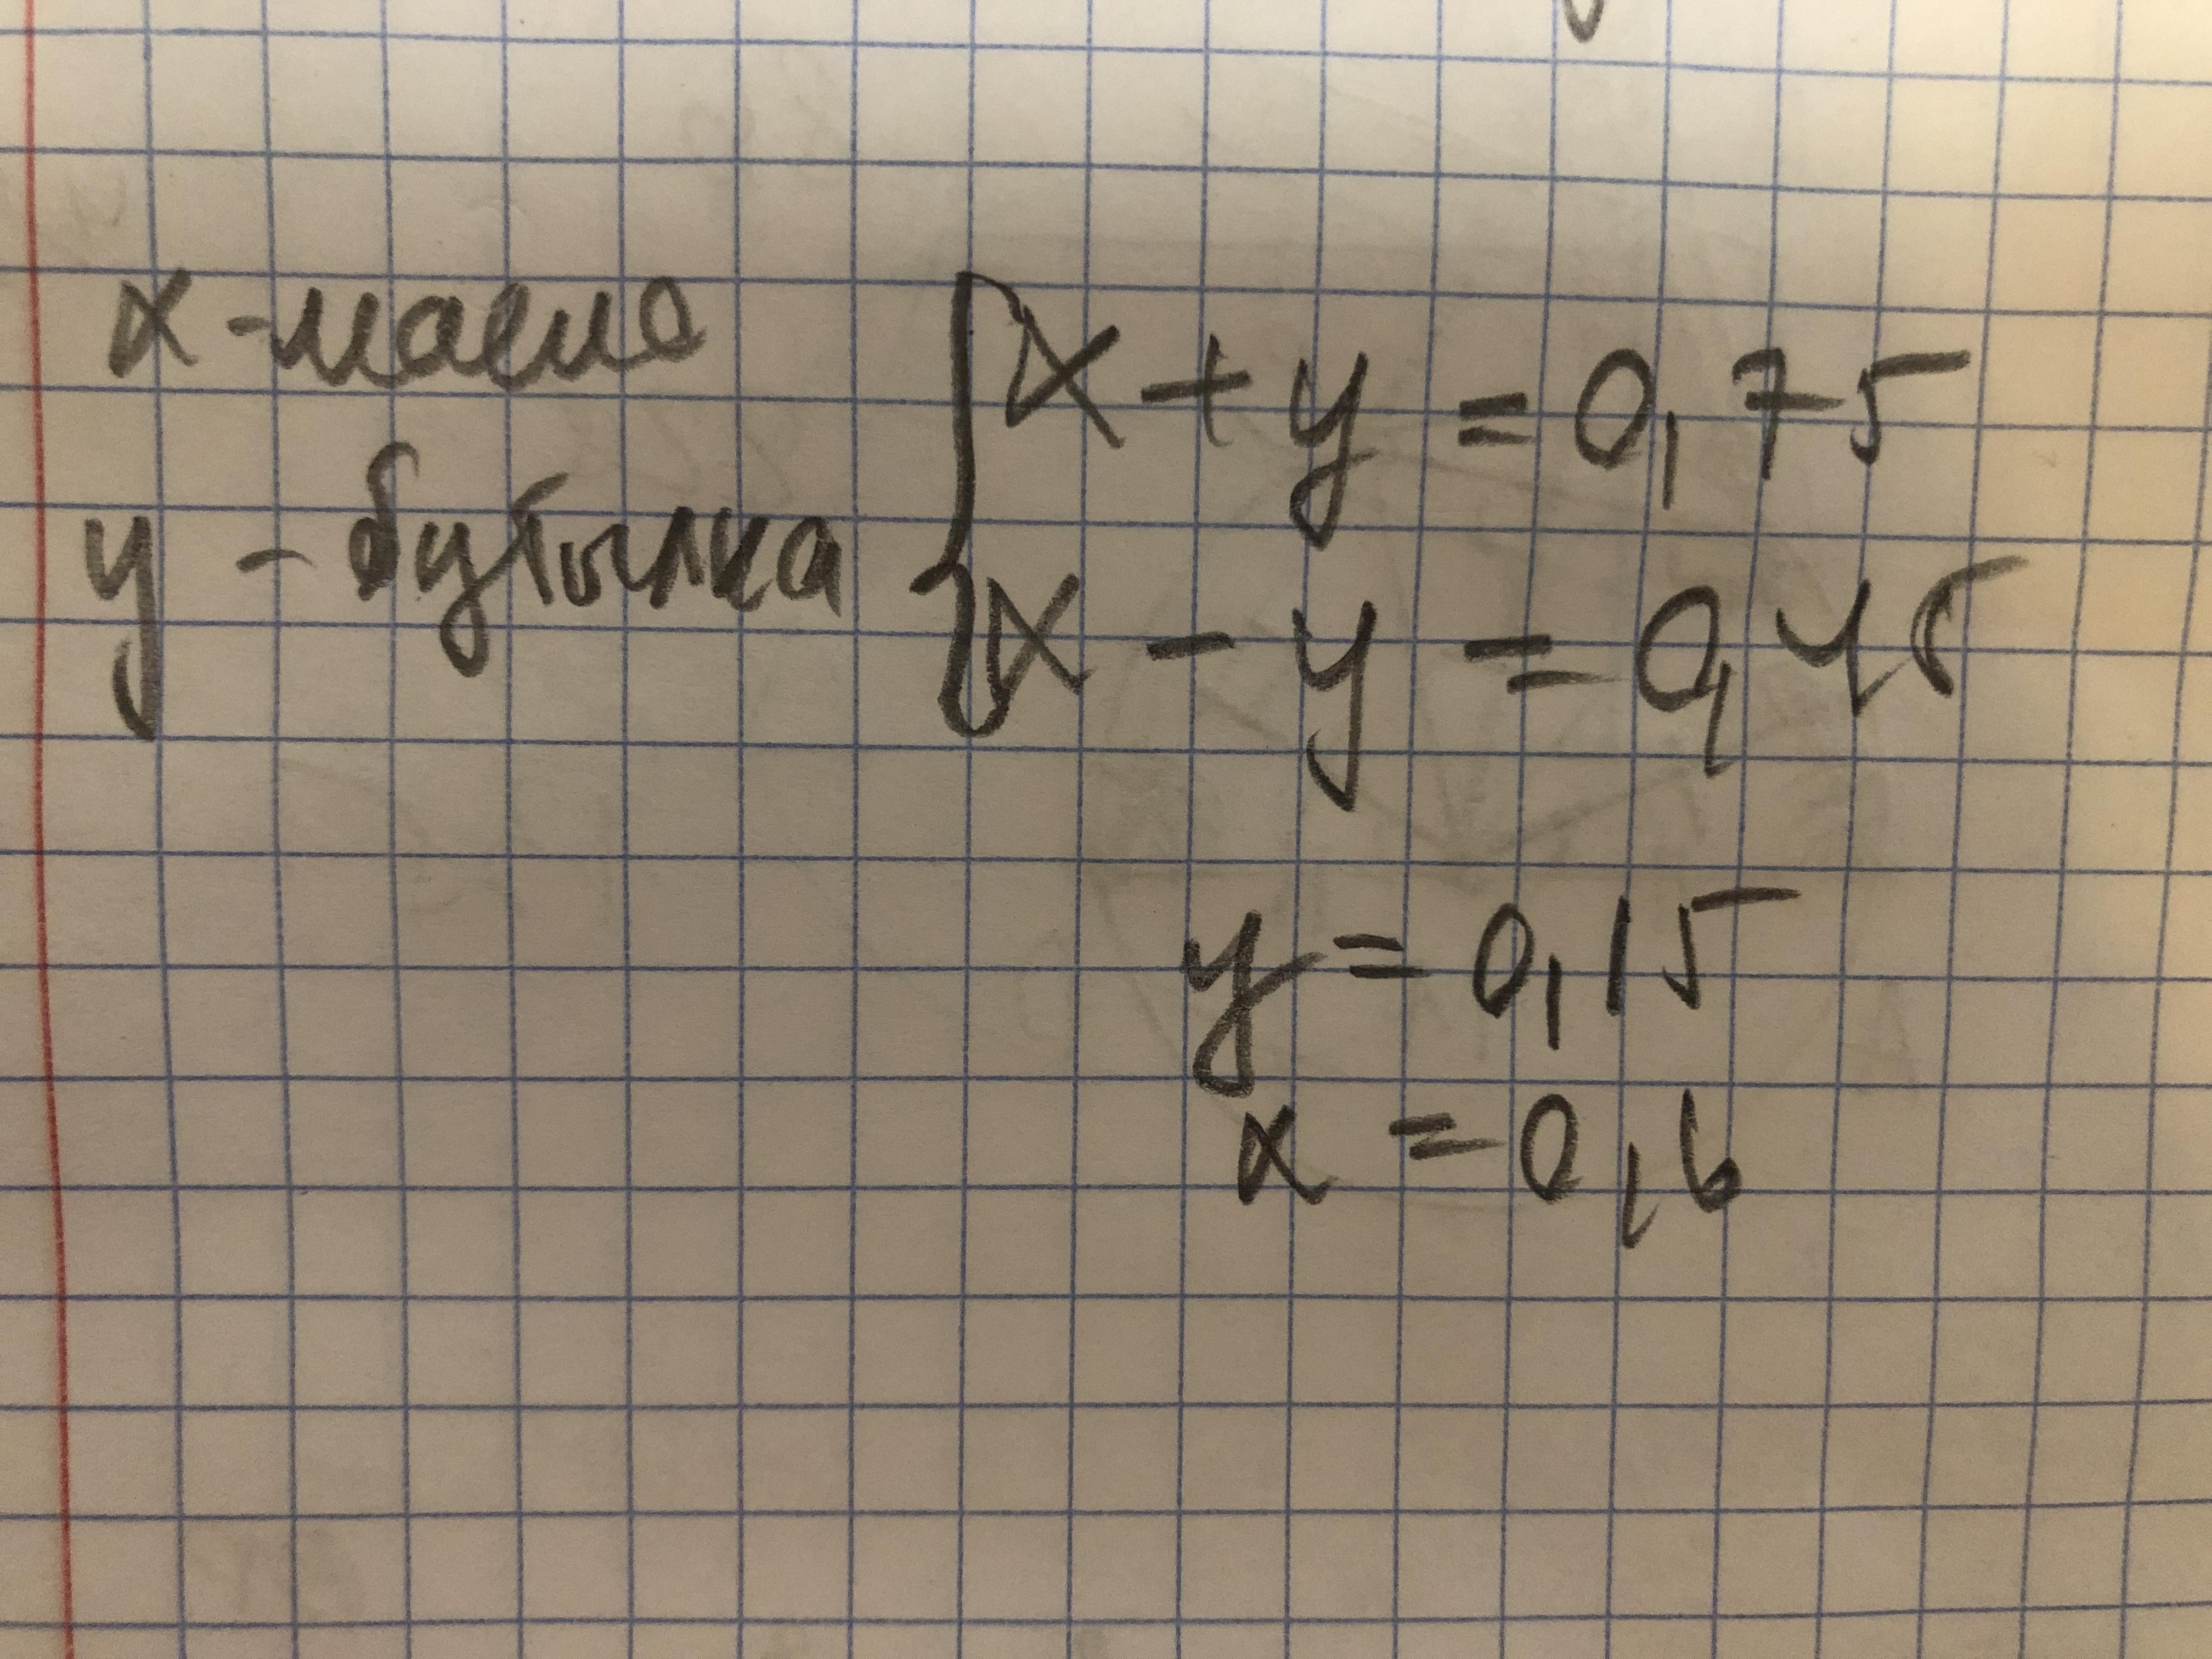 x - масло
y - бутылка
{ x + y = 0,75
x - y = 0,45
y = 0,15
x = 0,6